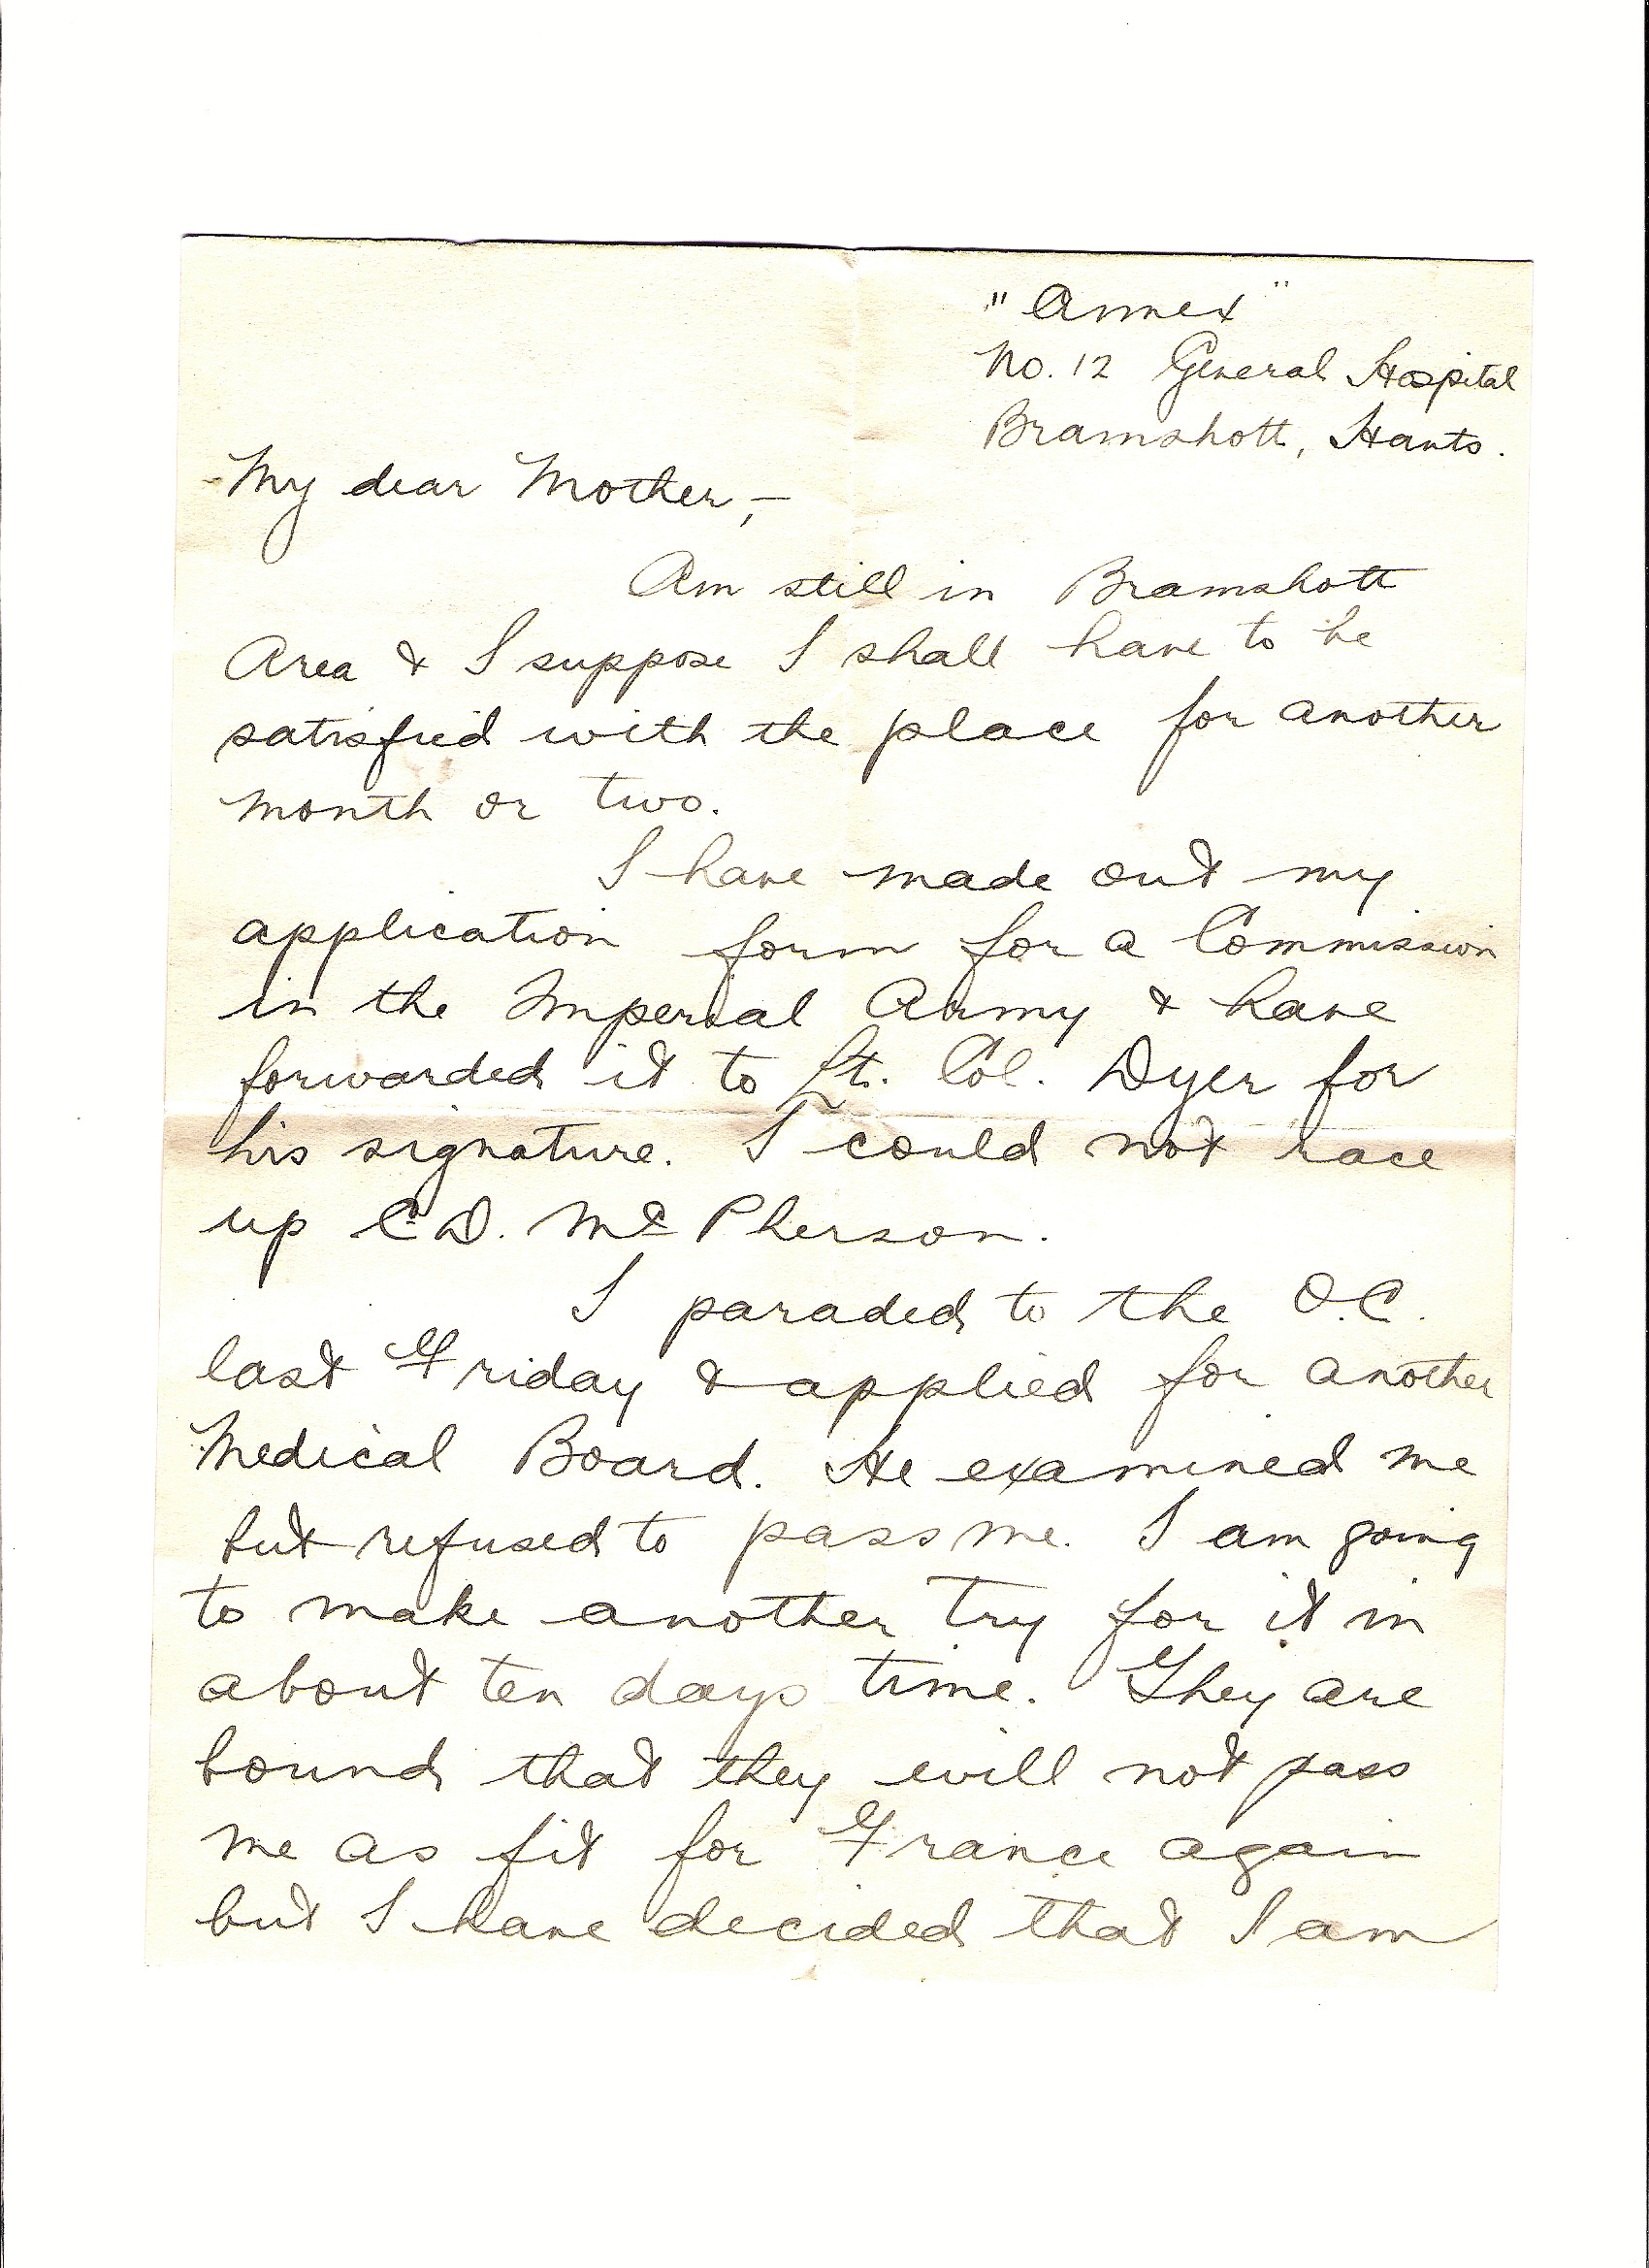 "Annex"
No. 12 General Hospital
Bramshott, Hants.
My dear Mother,—
Am still in Bramshott
Area & I suppose I shall have to be
satisfied with the place for another
month or two.
I have made out my
application form for a Commission
in the Imperial Army & have
forwarded it to Lt. Col. Dyer for
his signature. I could not race
up C.D. McPherson.
I paraded to the O.C.
last Friday & applied for another
Medical Board. He examined me
but refused to pass me. I am going
to make another try for it in
about ten days time. They are
bound that they will not pass
me as fit for France again
but I have decided that I am